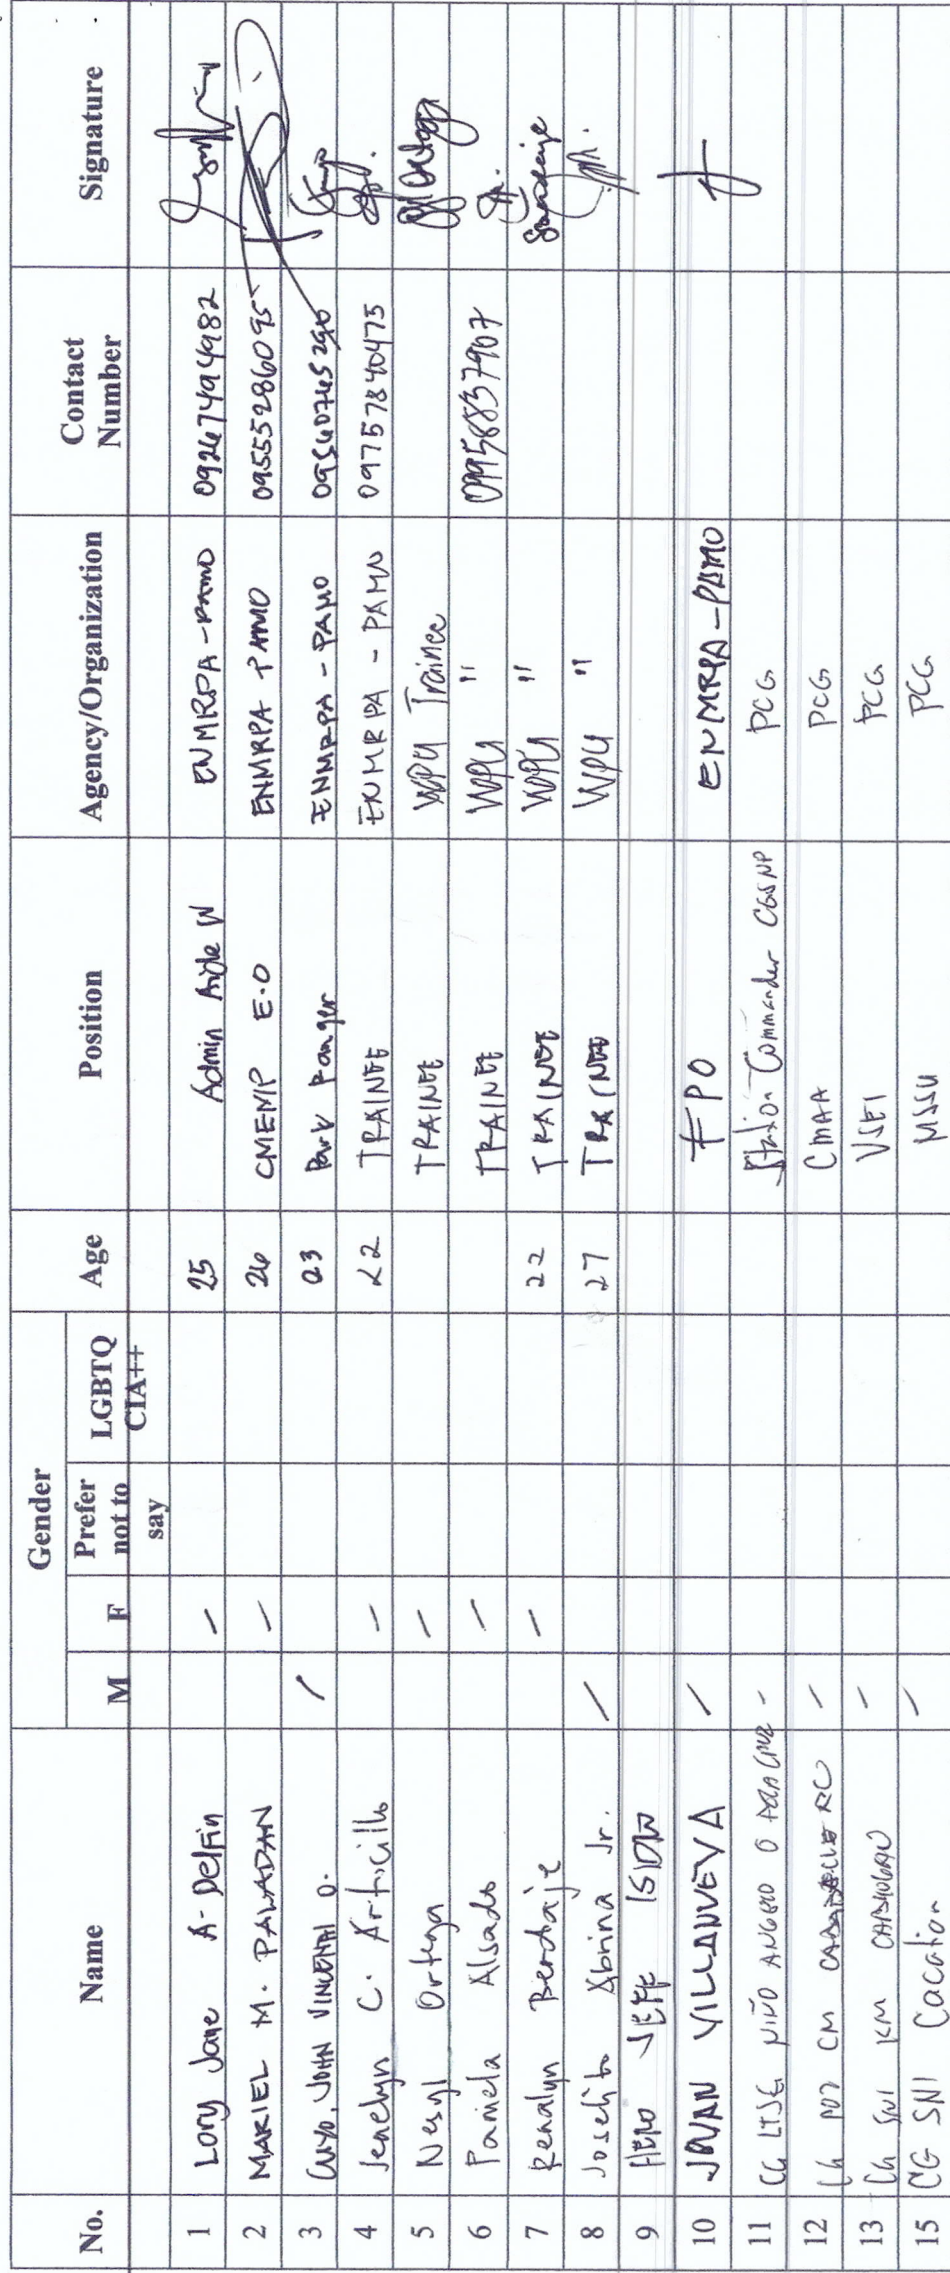 No. Name Gender Age Position Agency/Organization Contact Number Signature
M F Prefer not to say LGBTQ CIA++
1 Lory Jane A. Delfin / 25 Admin Aide IV ENMRPA - PAMO 09267494982
2 MARIEL M. PALADAN / 26 CMEMP E.O ENMRPA PAMO 09555286095
3 CUYO, JOHN VINCENT O. / 23 Park Ranger ENMRPA - PAMO
4 Jenelyn C. Articillo / 22 TRAINEE ENMRPA - PAMO 09757840475
5 Nesyl Ortega / TRAINEE WPU Trainee
6 Pamela Alsado / TRAINEE WPU " 09958837907
7 Renalyn Berdaje / 22 TRAINEE WPU "
8 Joselito Abrina Jr. / 27 TRAINEE WPU "
9 JEFF
10 JOVAN VILLANUEVA / FPO ENMRPA - PAMO
11 CG LTJG NIÑO O - Station Commander CGSNP PCG
12 CG PO2 CM RC / CMAA PCG
13 CG SN1 KM / VSEI PCG
15 CG SN1 Cacation / MSSU PCG